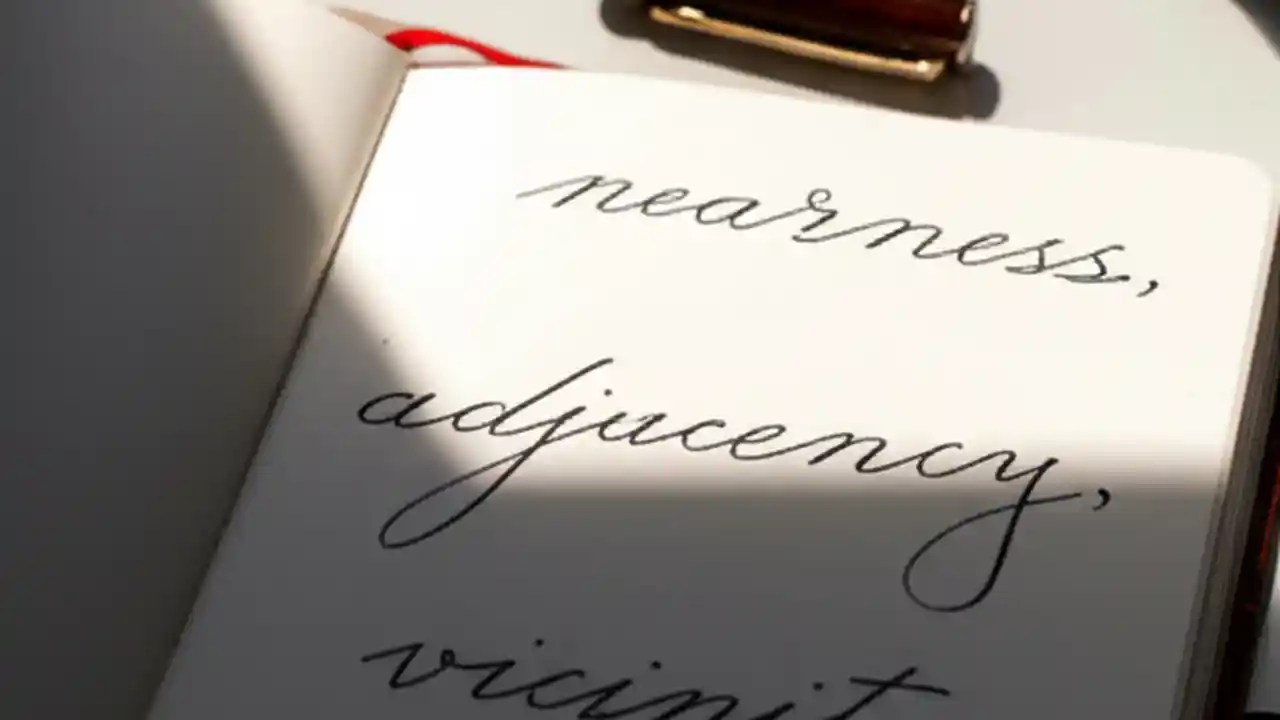 nearness,
adjacency,
vicinit